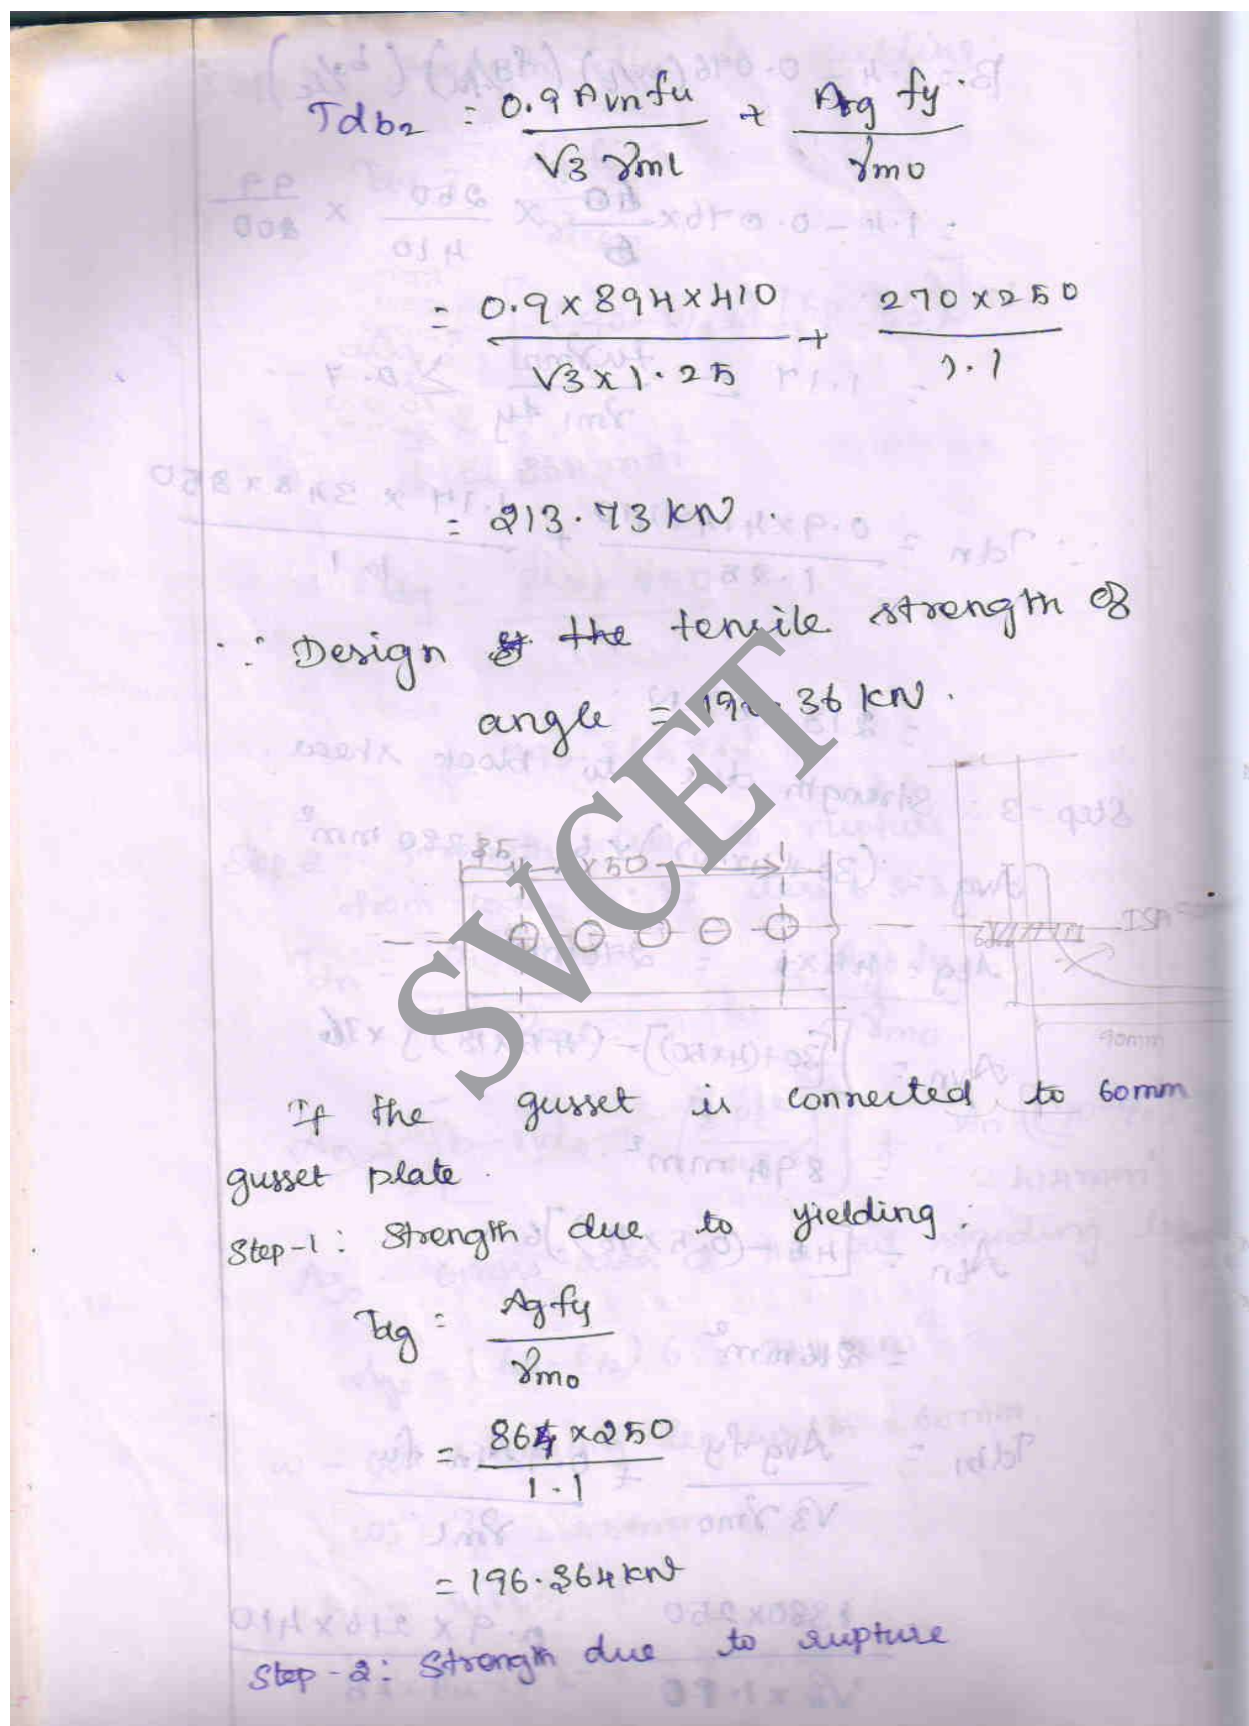 Tdb2 = 0.9 Avn fu / √3 γm1 + Atg fy / γm0
= 0.9 × 894 × 410 / √3 × 1.25 + 270 × 250 / 1.1
= 213.73 kN.
∴ Design the tensile strength of
angle = 36 kN.
35 50
ISA
6mm
90mm
If the gusset is connected to 60mm
gusset plate.
Step-1: Strength due to yielding:
Tdg = Ag fy / γm0
= 864 × 250 / 1.1
= 196.364 kN
Step-2: Strength due to rupture
SVCET